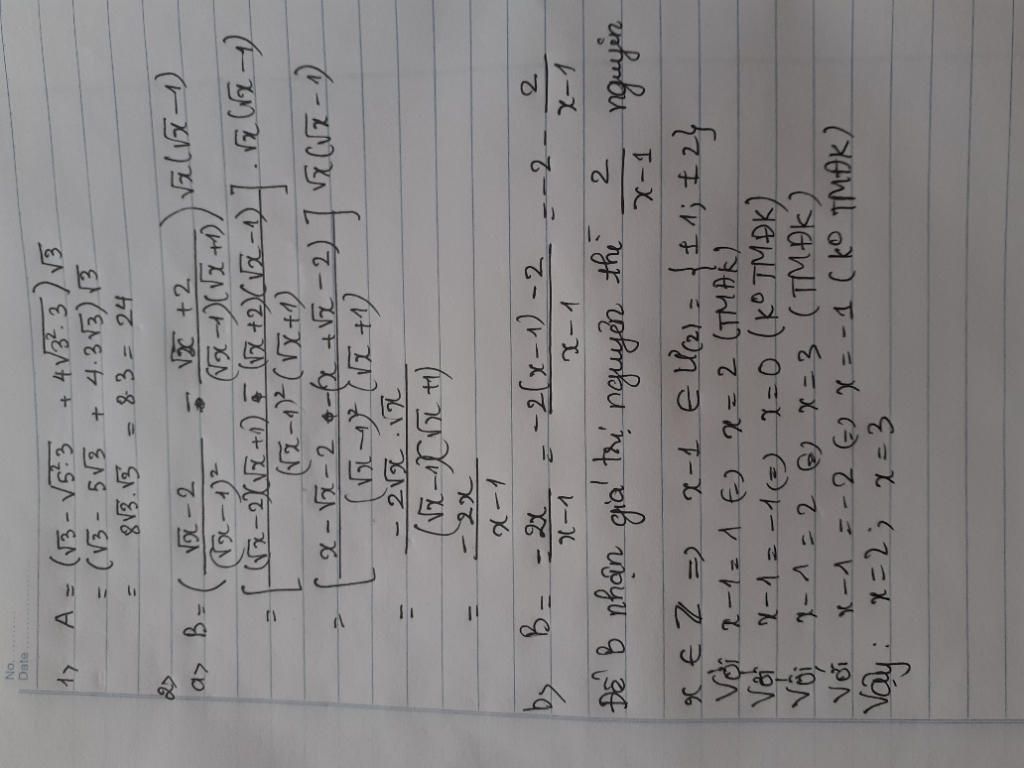 No. ...........
Date ...........
1> A = (√3 - √5².3 + 4√3².3)√3
= (√3 - 5√3 + 4.3√3)√3
= 8√3.√3 = 8.3 = 24
2>
a> B = ( (√x - 2)/(√x - 1)² - (√x + 2)/((√x - 1)(√x + 1)) ) √x(√x - 1)
= [ ((√x - 2)(√x + 1) - (√x + 2)(√x - 1))/((√x - 1)²(√x + 1)) ] . √x(√x - 1)
= [ (x - √x - 2 - (x + √x - 2))/((√x - 1)²(√x + 1)) ] √x(√x - 1)
= (-2√x . √x)/((√x - 1)(√x + 1))
= (-2x)/(x - 1)
b> B = (-2x)/(x - 1) = (-2(x - 1) - 2)/(x - 1) = -2 - 2/(x - 1)
Để B nhận giá trị nguyên thì 2/(x - 1) nguyên
x ∈ Z => x - 1 ∈ Ư(2) = {± 1; ± 2}
Với x - 1 = 1 (=) x = 2 (TMĐK)
Với x - 1 = -1 (=) x = 0 (K° TMĐK)
Với x - 1 = 2 (=) x = 3 (TMĐK)
Với x - 1 = -2 (=) x = -1 (K° TMĐK)
Vậy: x = 2; x = 3